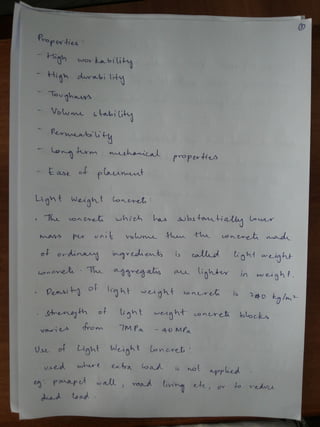 Properties:
- High workability
- High durability
- Toughness
- Volume stability
- Permeability
- Longterm mechanical properties
- Ease of placement
Light Weight Concrete:
. The concrete which has substantially lower
mass per unit volume then the concrete made
of ordinary ingredients is called light weight
concrete. The aggregates are lighter in weight.
. Density of light weight concrete is kg/m²
. Strength of light weight concrete blocks
varies from 7MPa - 40MPa
Use of Light Weight Concrete:
used where extra load is not applied.
eg: parapet wall, road lining etc, or to reduce
dead load.